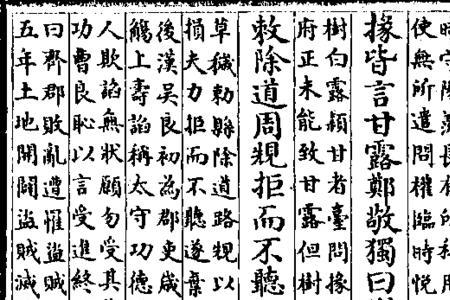 使無所遣問權臨時悅
掾皆言甘露鄭敬獨曰
樹白露穎甘者臺問掾
府正未能致甘露但樹
敕除道周規拒而不聽
草穢勅縣除道路規以
損夫力拒而不聽遂棄
後漢吳良初為郡吏歲
觴上壽諂稱太守功德
人欺諂無狀願勿受其
功曹良恥以言受進終
曰齊郡敗亂遭罹盜賊
五年土地開闢盜賊滅